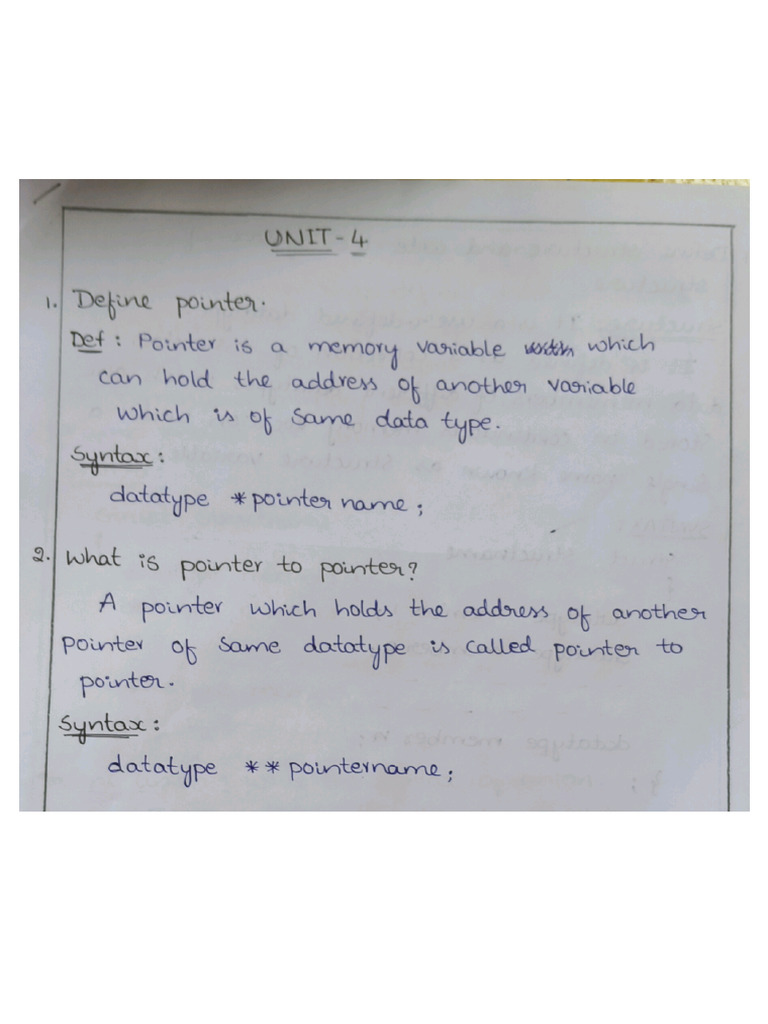 UNIT-4
1. Define pointer.
Def: Pointer is a memory variable which
can hold the address of another variable
which is of same data type.
Syntax:
datatype *pointer name;
2. What is pointer to pointer?
A pointer which holds the address of another
pointer of same datatype is called pointer to
pointer.
Syntax:
datatype **pointername;